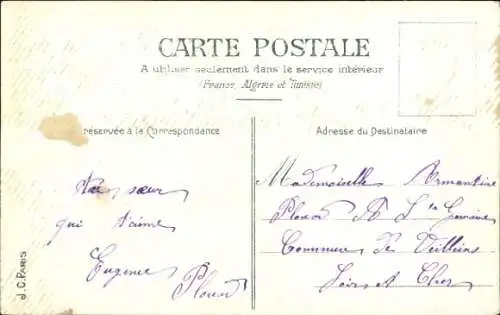 CARTE POSTALE
A utiliser seulement dans le service intérieur
(France, Algérie et Tunisie)
réservée à la Correspondance
Adresse du Destinataire
sœur
qui t'aime
Eugenie Plouard
Mademoiselle Armantine
Plouard
Commune de Veilleins
Loir et Cher
J.C. PARIS